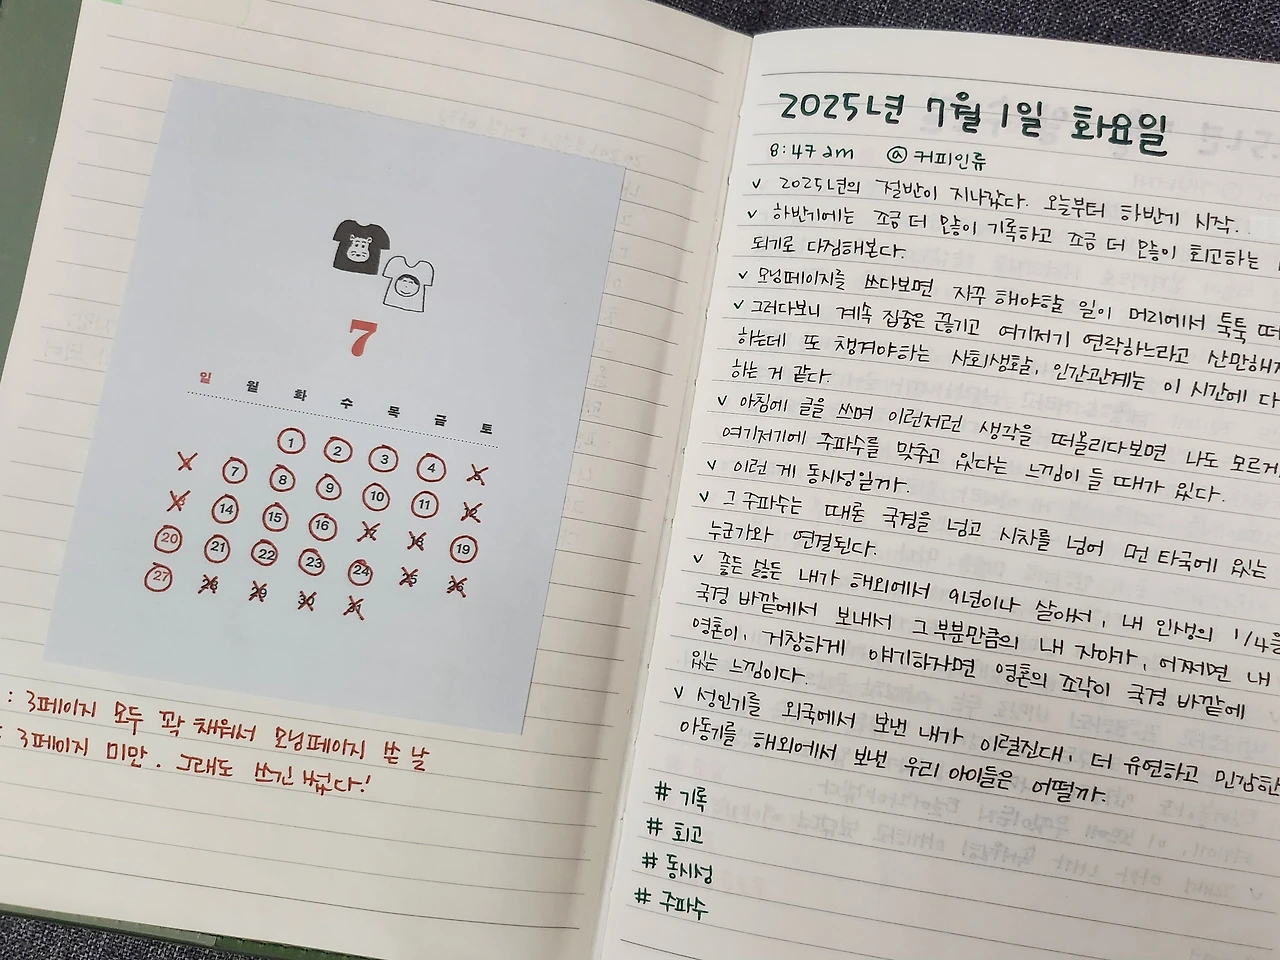 7
일 월 화 수 목 금 토
1 2 3 4
7 8 9 10 11
14 15 16 19
20 21 22 23 24 25 26
27 28 29 30 31
: 3페이지 모두 꽉 채워서 모닝페이지 쓴 날
: 3페이지 미만. 그래도 쓰긴 썼다!
2025년 7월 1일 화요일
8:47am @커피인류
✓ 2025년의 절반이 지나갔다. 오늘부터 하반기 시작.
✓ 하반기에는 조금 더 많이 기록하고 조금 더 많이 회고하는
되기로 다짐해본다.
✓ 모닝페이지를 쓰다보면 자꾸 해야할 일이 머리에서 툭툭
✓ 그러다보니 계속 집중은 끊기고 여기저기 연락하느라고
하는데 또 챙겨야하는 사회생활, 인간관계는 이 시간에 다
하는 거 같다.
✓ 아침에 글을 쓰며 이런저런 생각을 떠올리다보면 나도 모르게
여기저기에 주파수를 맞추고 있다는 느낌이 들 때가 있다.
✓ 이런 게 동시성일까.
✓ 그 주파수는 때론 국경을 넘고 시차를 넘어 먼 타국에 있는
누군가와 연결된다.
✓ 좋든 싫든 내가 해외에서 9년이나 살아서, 내 인생의 1/4을
국경 바깥에서 보내서 그 부분만큼의 내 자아가, 어쩌면 내
영혼이, 거창하게 얘기하자면 영혼의 조각이 국경 바깥에
있는 느낌이다.
✓ 성인기를 외국에서 보낸 내가 이럴진대, 더 유연하고 민감한
아동기를 해외에서 보낸 우리 아이들은 어떨까.
# 기록
# 회고
# 동시성
# 주파수